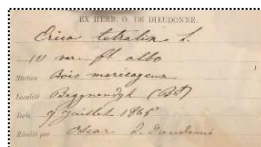 EX HERB. O. DE DIEUDONNE.
Erica tetralix L.
var. fl albo
Station Bois marécageux
Localité Beggnendyk (Bt)
Date 9 Juillet 1865
Récolté par Oscar de Dieudonné